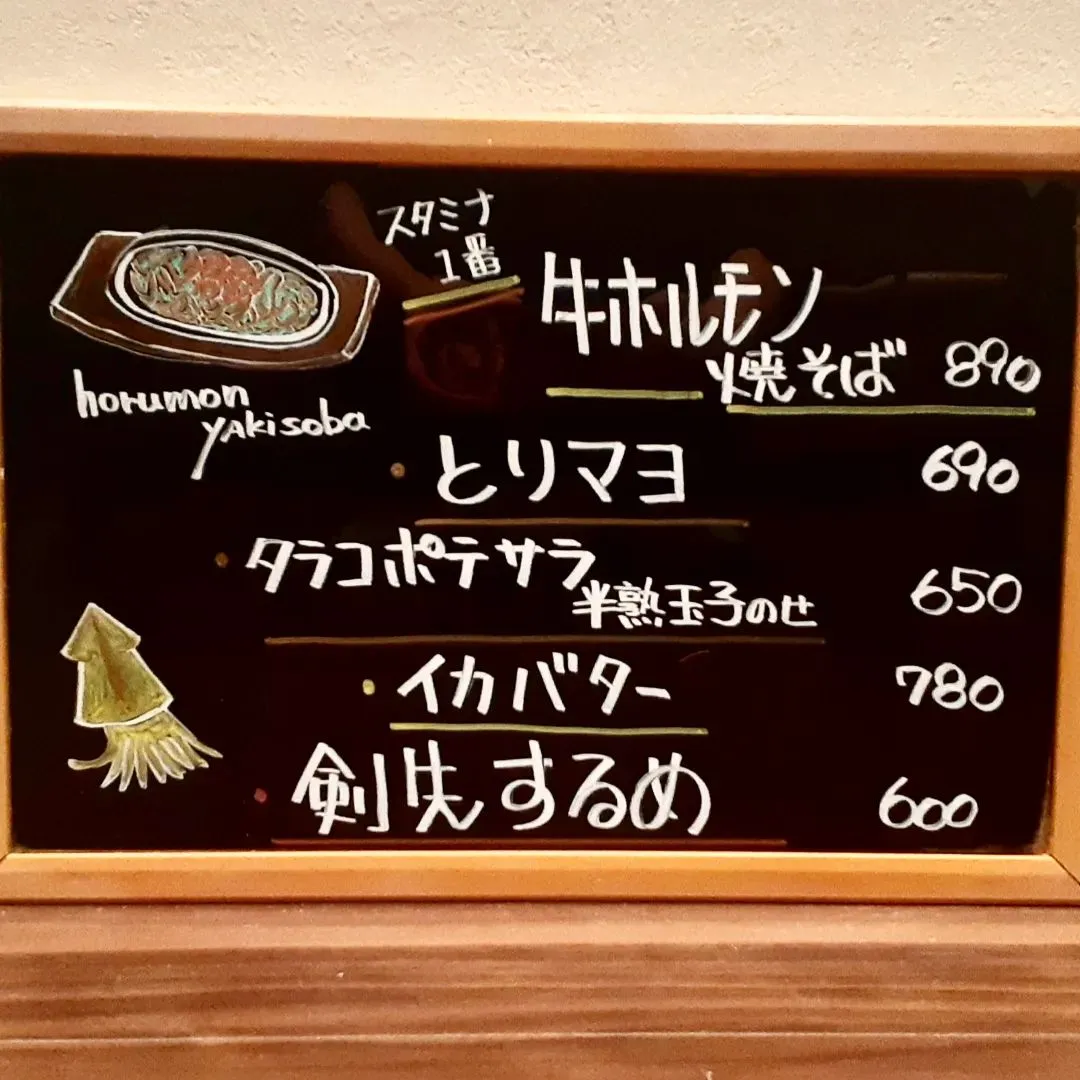 スタミナ
1番
牛ホルモン
焼そば 890
horumon
yakisoba
・とりマヨ 690
・タラコポテサラ
半熟玉子のせ 650
・イカバター 780
・剣先するめ 600